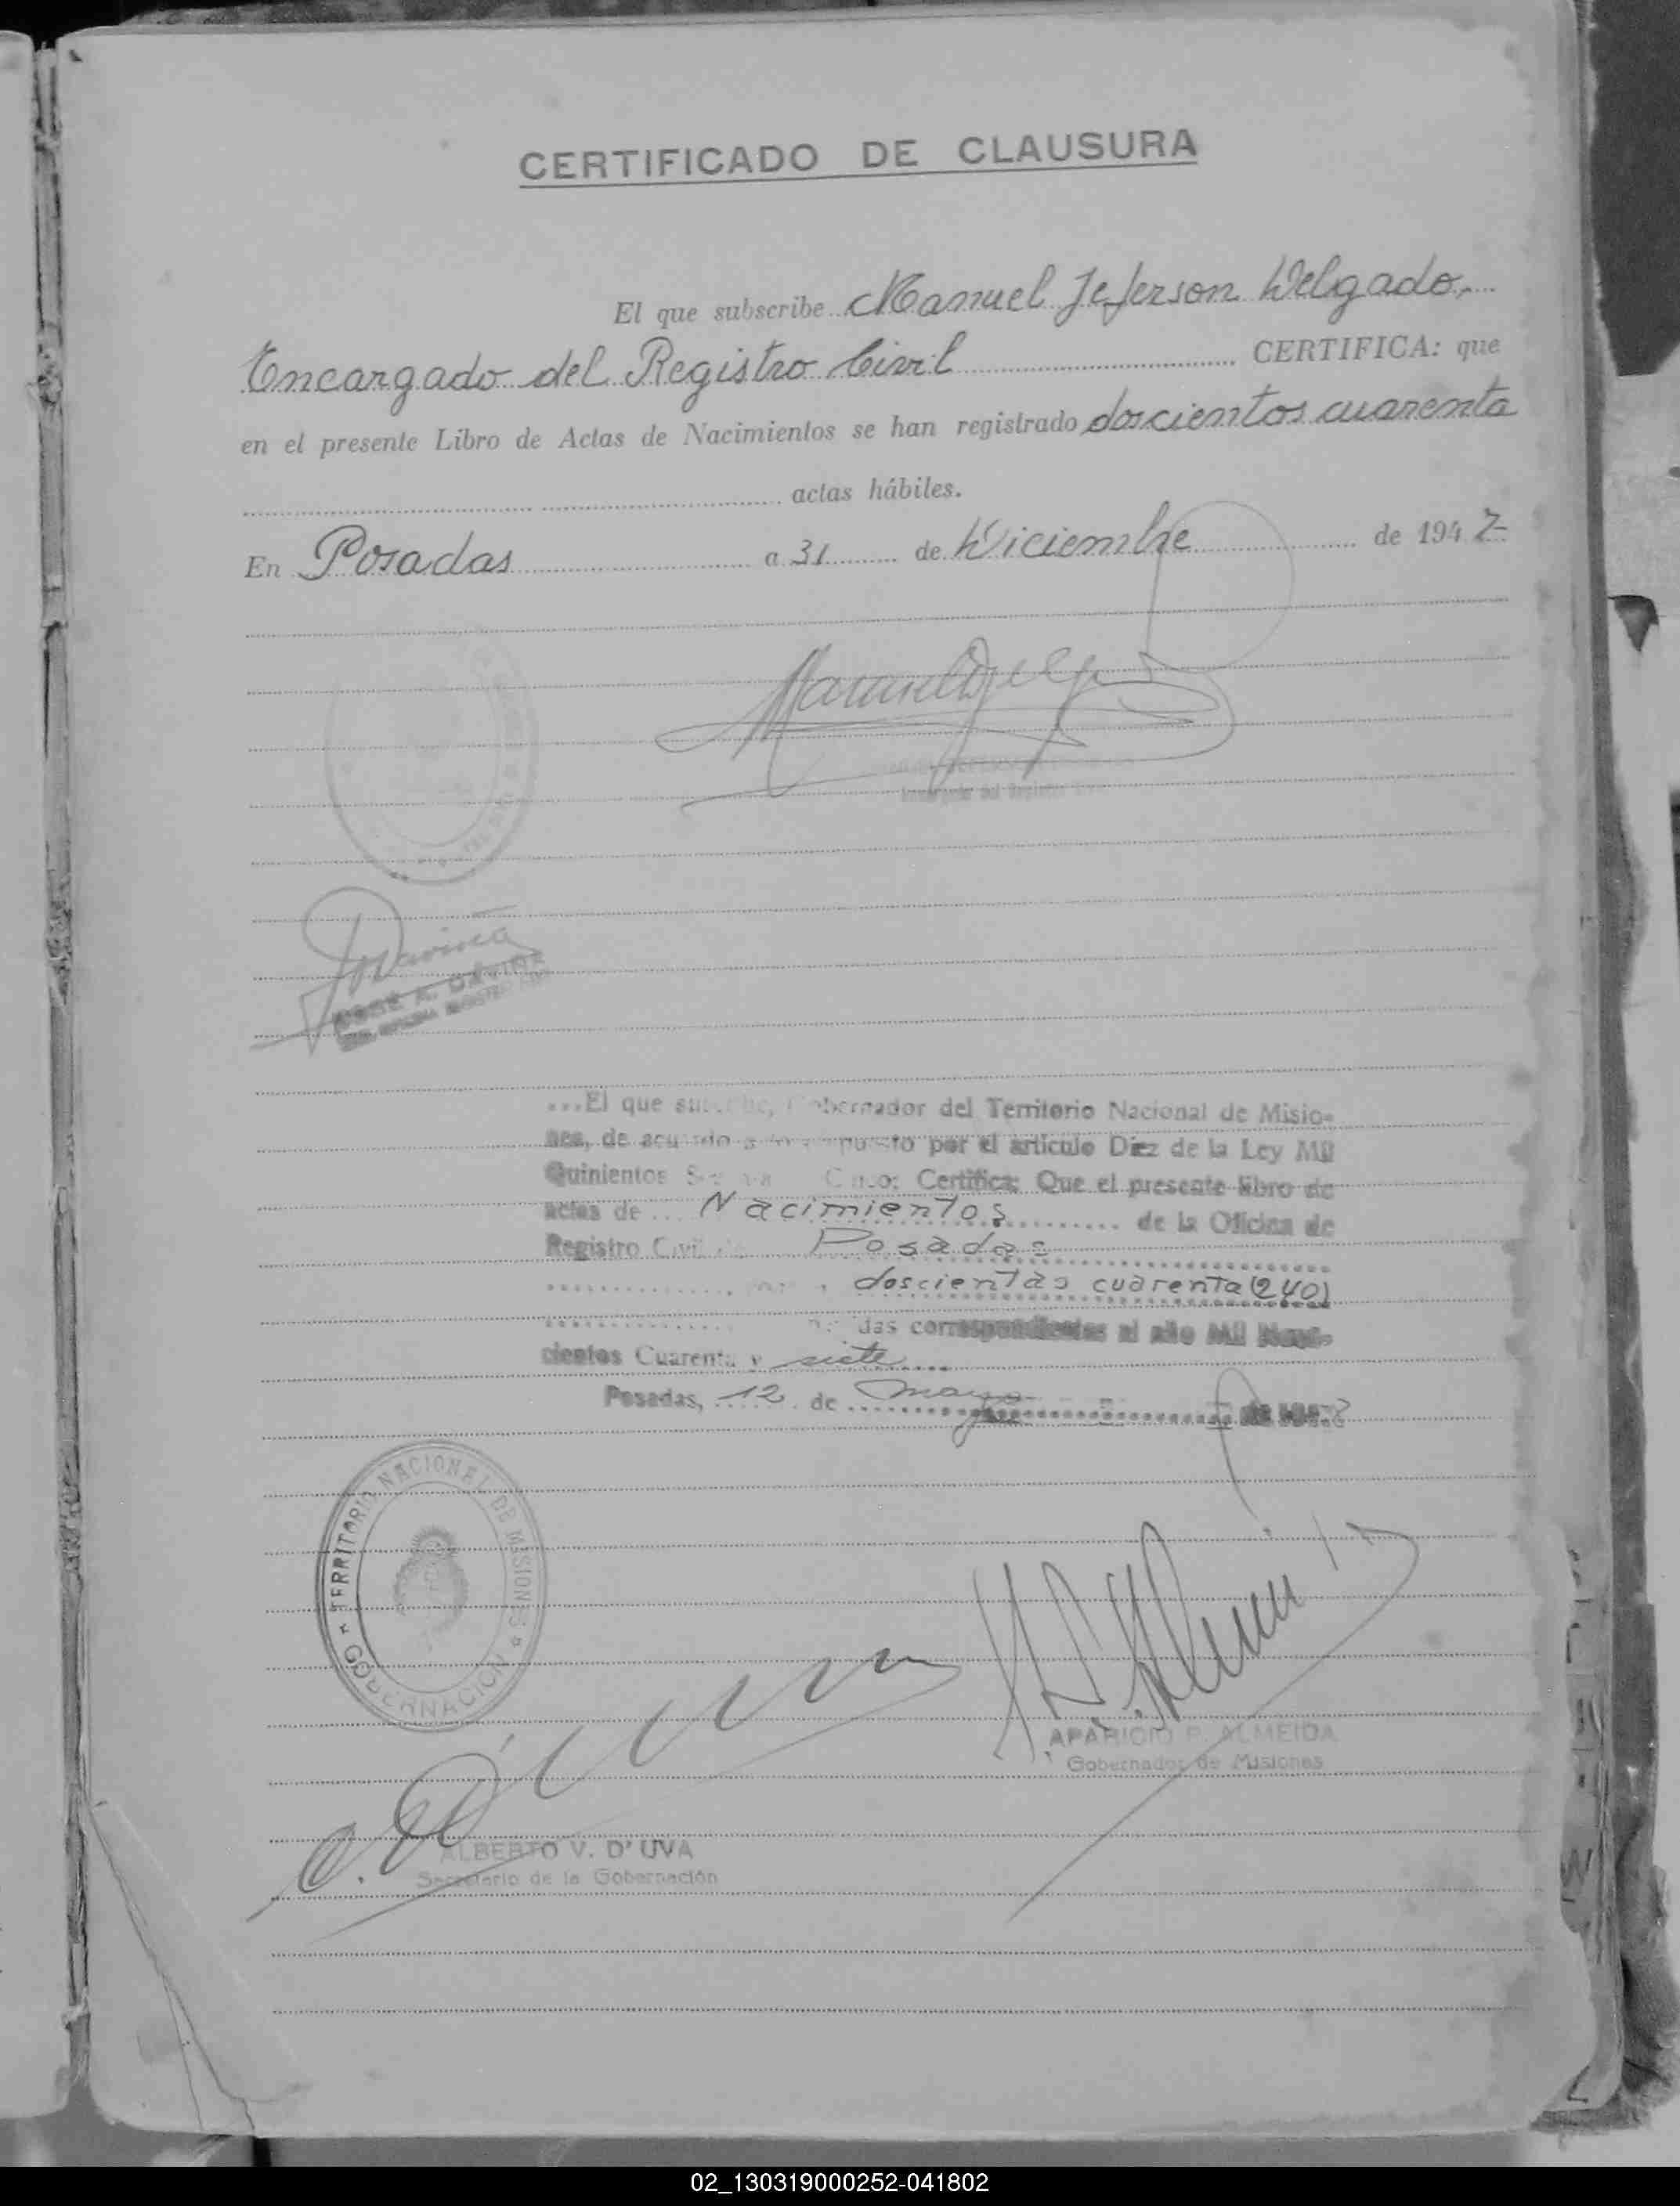 CERTIFICADO DE CLAUSURA
El que subscribe Manuel Jeferson Delgado.
Encargado del Registro Civil CERTIFICA: que
en el presente Libro de Actas de Nacimientos se han registrado doscientos cuarenta
actas hábiles.
En Posadas a 31 de Diciembre de 1947
Manuel
Encargado del Registro
JOSE A. DAVIÑA
...El que suscribe, Gobernador del Territorio Nacional de Misio-
nes, de acuerdo a lo dispuesto por el artículo Diez de la Ley Mil
Quinientos Cinco: Certifica: Que el presente libro de
actas de Nacimientos de la Oficina de
Registro Civil Posadas
doscientas cuarenta (240)
das correspondientes al año Mil Nove-
cientos Cuarenta y siete
Posadas, 12 de mayo de 1948
TERRITORIO NACIONAL DE MISIONES
GOBERNACION
APARICIO P. ALMEIDA
Gobernador de Misiones
ALBERTO V. D'UVA
Secretario de la Gobernación
02_130319000252-041802